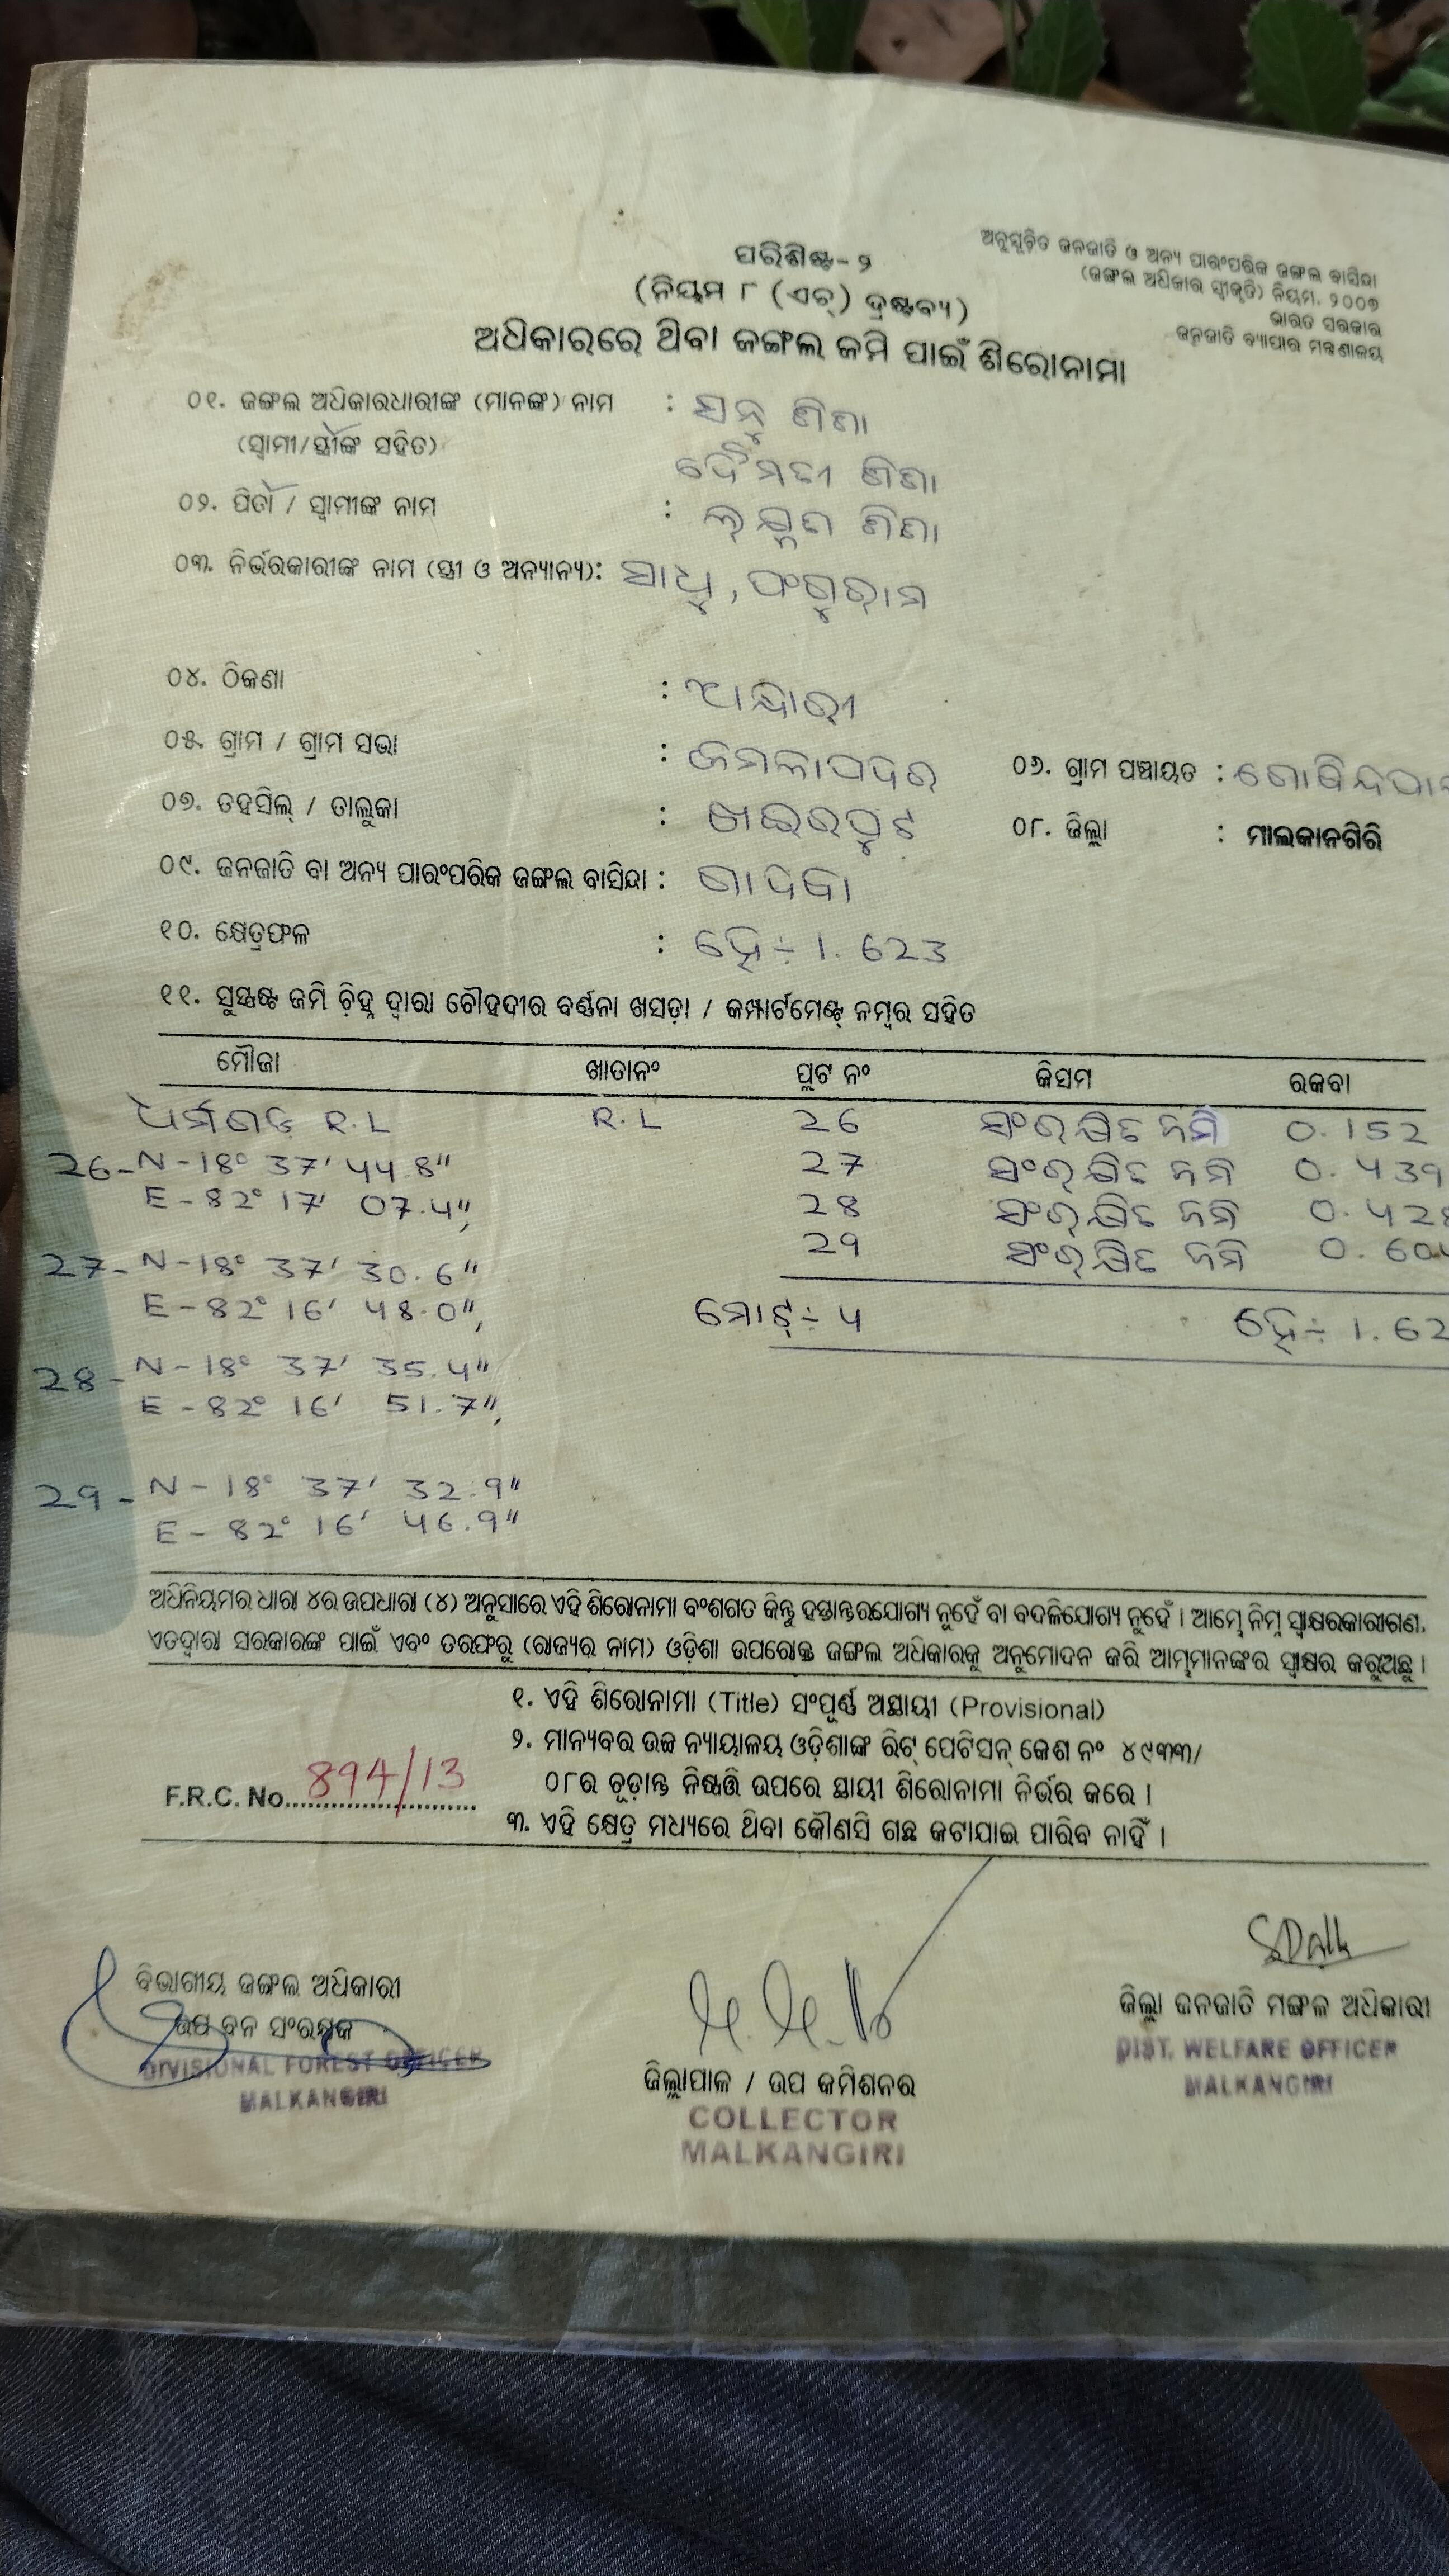 ଅନୁସୂଚିତ ଜନଜାତି ଓ ଅନ୍ୟ ପାରଂପରିକ ଜଙ୍ଗଲ ବାସିନ୍ଦା
(ଜଙ୍ଗଲ ଅଧିକାର ସ୍ୱୀକୃତି) ନିୟମ, ୨୦୦୭
ଭାରତ ସରକାର
ଜନଜାତି ବ୍ୟାପାର ମନ୍ତ୍ରଣାଳୟ
ପରିଶିଷ୍ଟ-୨
(ନିୟମ ୮ (ଏଚ୍) ଦ୍ରଷ୍ଟବ୍ୟ)
ଅଧିକାରରେ ଥିବା ଜଙ୍ଗଲ ଜମି ପାଇଁ ଶିରୋନାମା
୦୧. ଜଙ୍ଗଲ ଅଧିକାରଧାରୀଙ୍କ (ମାନଙ୍କ) ନାମ : ସନୁ ଶିଶା
(ସ୍ୱାମୀ/ସ୍ତ୍ରୀଙ୍କ ସହିତ) ଦୈମତୀ ଶିଶା
୦୨. ପିତା / ସ୍ୱାମୀଙ୍କ ନାମ : ଲକ୍ଷ୍ମଣ ଶିଶା
୦୩. ନିର୍ଭରକାରୀଙ୍କ ନାମ (ସ୍ତ୍ରୀ ଓ ଅନ୍ୟାନ୍ୟ): ସାଧୁ, ଫଗୁରାମ
୦୪. ଠିକଣା : ଆନ୍ଧାରୀ
୦୫. ଗ୍ରାମ / ଗ୍ରାମ ସଭା : କମଳାପଦର ୦୬. ଗ୍ରାମ ପଞ୍ଚାୟତ : ଗୋବିନ୍ଦପା
୦୭. ତହସିଲ୍ / ତାଲୁକା : ଖଇରପୁଟ ୦୮. ଜିଲ୍ଲା : ମାଲକାନଗିରି
୦୯. ଜନଜାତି ବା ଅନ୍ୟ ପାରଂପରିକ ଜଙ୍ଗଲ ବାସିନ୍ଦା : ଗାଦବା
୧୦. କ୍ଷେତ୍ରଫଳ : ହେ÷ 1.623
୧୧. ସୁସ୍ପଷ୍ଟ ଜମି ଚିହ୍ନ ଦ୍ୱାରା ଚୌହଦୀର ବର୍ଣ୍ଣନା ଖସଡ଼ା / କମ୍ପାର୍ଟମେଣ୍ଟ୍ ନମ୍ବର ସହିତ
ମୌଜା ଖାତାନଂ ପ୍ଲଟ ନଂ କିସମ ରକବା
ଧର୍ମଗଡ଼ R.L R.L 26 ସଂରକ୍ଷିତ ଜମି 0.152
26- N-18° 37' 44.8" 27 ସଂରକ୍ଷିତ ଜମି 0.439
E-82° 17' 07.4", 28 ସଂରକ୍ଷିତ ଜମି 0.428
29 ସଂରକ୍ଷିତ ଜମି 0.604
27- N-18° 37' 30.6"
E-82° 16' 48.0", ମୋଟ୍÷ 4 ହେ÷ 1.62
28- N-18° 37' 35.4"
E-82° 16' 51.7",
29- N-18° 37' 32.9"
E-82° 16' 46.9"
ଅଧିନିୟମର ଧାରା ୪ର ଉପଧାରା (୪) ଅନୁସାରେ ଏହି ଶିରୋନାମା ବଂଶଗତ କିନ୍ତୁ ହସ୍ତାନ୍ତରଯୋଗ୍ୟ ନୁହେଁ ବା ବଦଳିଯୋଗ୍ୟ ନୁହେଁ । ଆମ୍ଭେ ନିମ୍ନ ସ୍ୱାକ୍ଷରକାରୀଗଣ,
ଏତଦ୍ୱାରା ସରକାରଙ୍କ ପାଇଁ ଏବଂ ତରଫରୁ (ରାଜ୍ୟର ନାମ) ଓଡ଼ିଶା ଉପରୋକ୍ତ ଜଙ୍ଗଲ ଅଧିକାରକୁ ଅନୁମୋଦନ କରି ଆମ୍ଭମାନଙ୍କର ସ୍ୱାକ୍ଷର କରୁଅଛୁ ।
୧. ଏହି ଶିରୋନାମା (Title) ସଂପୂର୍ଣ୍ଣ ଅସ୍ଥାୟୀ (Provisional)
୨. ମାନ୍ୟବର ଉଚ୍ଚ ନ୍ୟାୟାଳୟ ଓଡ଼ିଶାଙ୍କ ରିଟ୍ ପେଟିସନ୍ କେଶ ନଂ ୪୯୩୩/
୦୮ର ଚୂଡ଼ାନ୍ତ ନିଷ୍ପତ୍ତି ଉପରେ ସ୍ଥାୟୀ ଶିରୋନାମା ନିର୍ଭର କରେ ।
F.R.C. No. 894/13
୩. ଏହି କ୍ଷେତ୍ର ମଧ୍ୟରେ ଥିବା କୌଣସି ଗଛ କଟାଯାଇ ପାରିବ ନାହିଁ ।
ବିଭାଗୀୟ ଜଙ୍ଗଲ ଅଧିକାରୀ
ଉପ ବନ ସଂରକ୍ଷକ
DIVISIONAL FOREST OFFICER
MALKANGIRI
ଜିଲ୍ଲାପାଳ / ଉପ କମିଶନର
COLLECTOR
MALKANGIRI
ଜିଲ୍ଲା ଜନଜାତି ମଙ୍ଗଳ ଅଧିକାରୀ
DIST. WELFARE OFFICER
MALKANGIRI